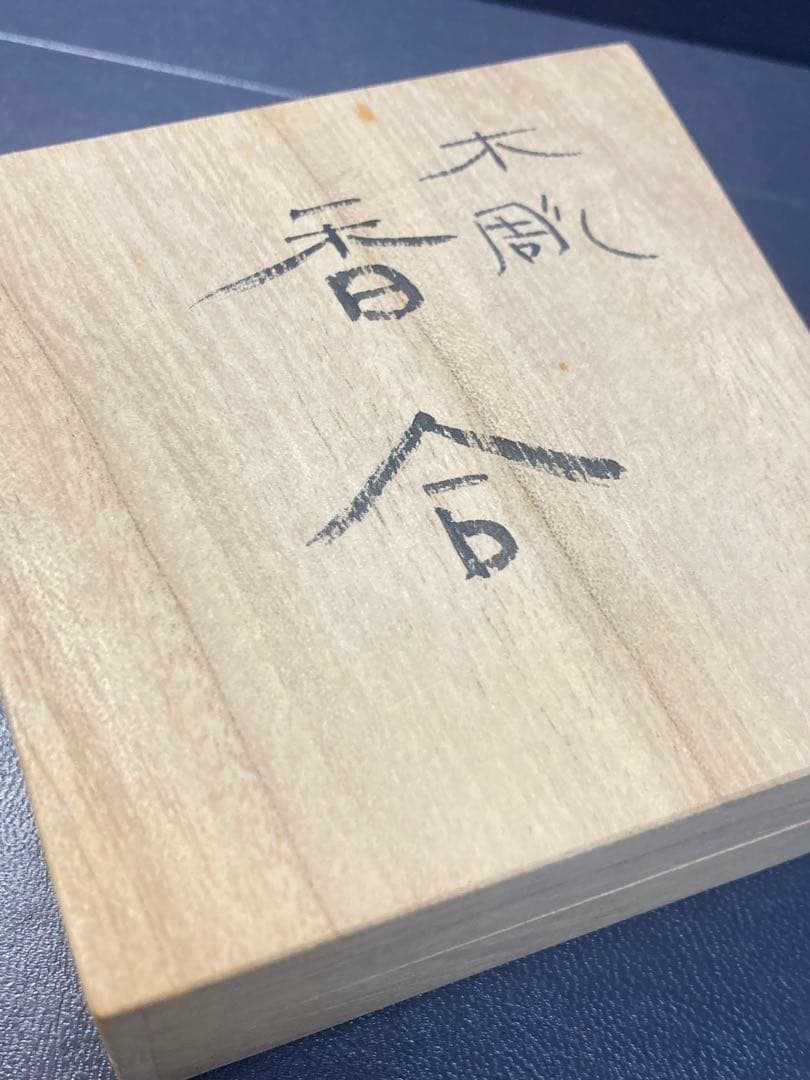 木彫
香合